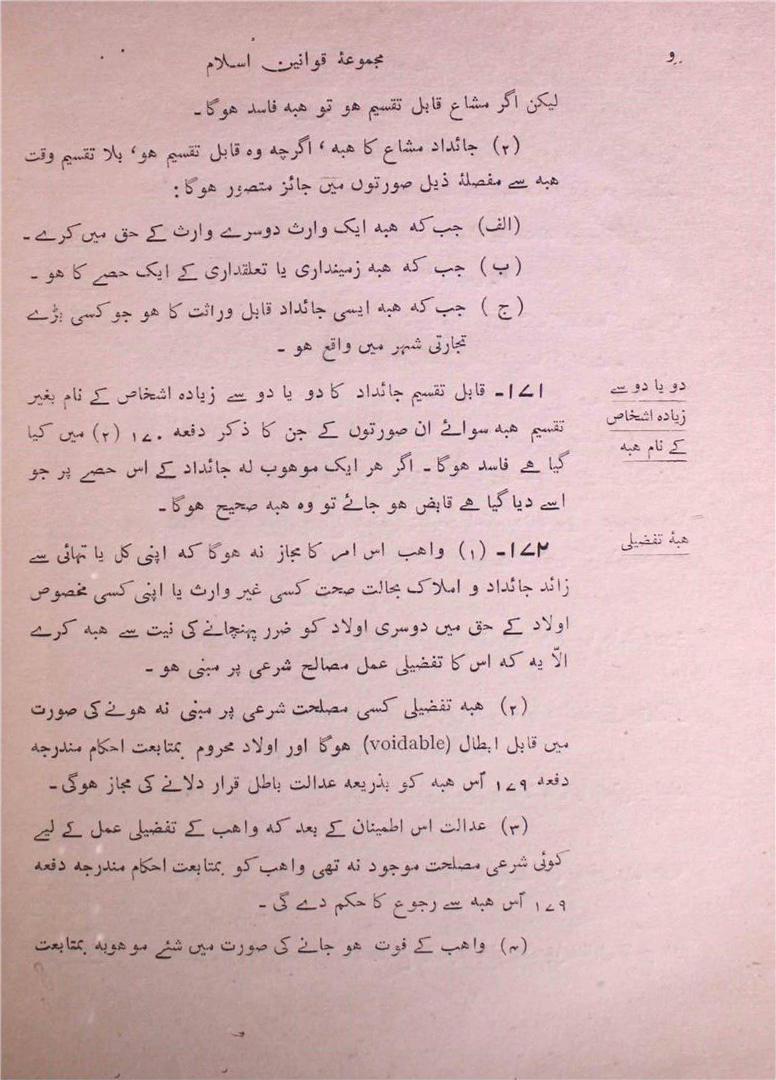 مجموعۂ قوانین اسلام
و
لیکن اگر مشاع قابل تقسیم هو تو هبه فاسد هوگا۔
(۲) جائداد مشاع کا هبه ، اگرچه وه قابل تقسیم هو، بلا تقسیم وقت
هبه سے مفصلۂ ذیل صورتوں میں جائز متصور هوگا :
(الف) جب که هبه ایک وارث دوسرے وارث کے حق میں کرے۔
(ب) جب که هبه زمینداری یا تعلقداری کے ایک حصے کا هو ۔
(ج) جب که هبه ایسی جائداد قابل وراثت کا هو جو کسی بڑے
تجارتی شہر میں واقع هو ۔
دو یا دو سے
زیاده اشخاص
کے نام هبه
۱۷۱۔ قابل تقسیم جائداد کا دو یا دو سے زیاده اشخاص کے نام بغیر
تقسیم هبه سوائے ان صورتوں کے جن کا ذکر دفعه ۱۷۰ (۲) میں کیا
گیا هے فاسد هوگا۔ اگر هر ایک موهوب له جائداد کے اس حصے پر جو
اسے دیا گیا هے قابض هو جائے تو وه هبه صحیح هوگا۔
هبۂ تفضیلی
۱۷۲۔ (۱) واهب اس امر کا مجاز نه هوگا که اپنی کل یا تہائی سے
زائد جائداد و املاک بحالت صحت کسی غیر وارث یا اپنی کسی مخصوص
اولاد کے حق میں دوسری اولاد کو ضرر پہنچانے کی نیت سے هبه کرے
الّا یه که اس کا تفضیلی عمل مصالح شرعی پر مبنی هو ۔
(۲) هبه تفضیلی کسی مصلحت شرعی پر مبنی نه هونے کی صورت
میں قابل ابطال (voidable) هوگا اور اولاد محروم بمتابعت احکام مندرجه
دفعه ۱۷۹ اُس هبه کو بذریعه عدالت باطل قرار دلانے کی مجاز هوگی۔
(۳) عدالت اس اطمینان کے بعد که واهب کے تفضیلی عمل کے لیے
کوئی شرعی مصلحت موجود نه تھی واهب کو بمتابعت احکام مندرجه دفعه
۱۷۹ اُس هبه سے رجوع کا حکم دے گی ۔
(۴) واهب کے فوت هو جانے کی صورت میں شئے موهوبه بمتابعت